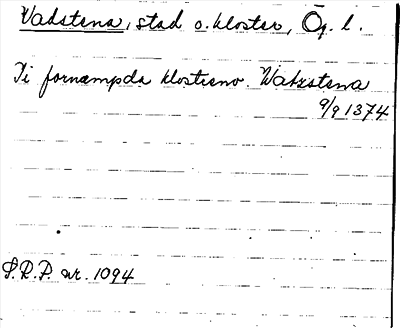 Vadstena, stad o. kloster, Ög. l.
Ti fornæmpda klostreno. Watzstena
9/9 1374
S.R.P. nr. 1094